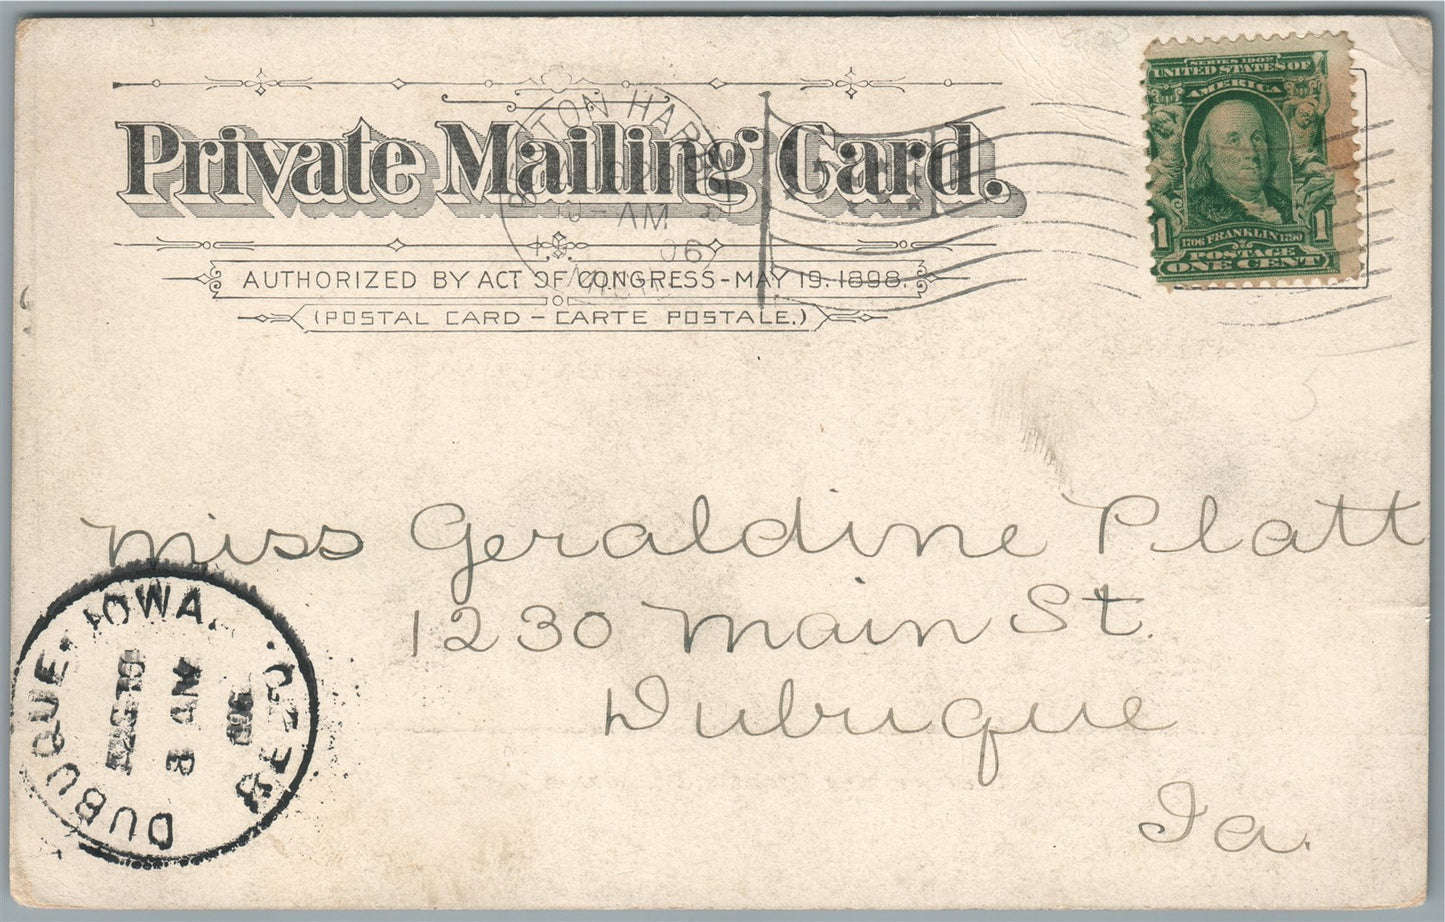 Private Mailing Card.
AUTHORIZED BY ACT OF CONGRESS-MAY 19, 1898.
(POSTAL CARD - CARTE POSTALE.)
AM
06
SERIES 1902
UNITED STATES OF
AMERICA
1706 FRANKLIN 1790
POSTAGE
1 ONE CENT 1
Miss Geraldine Platt
1230 Main St.
Dubuque
Ia.
DUBUQUE, IOWA.
8 AM